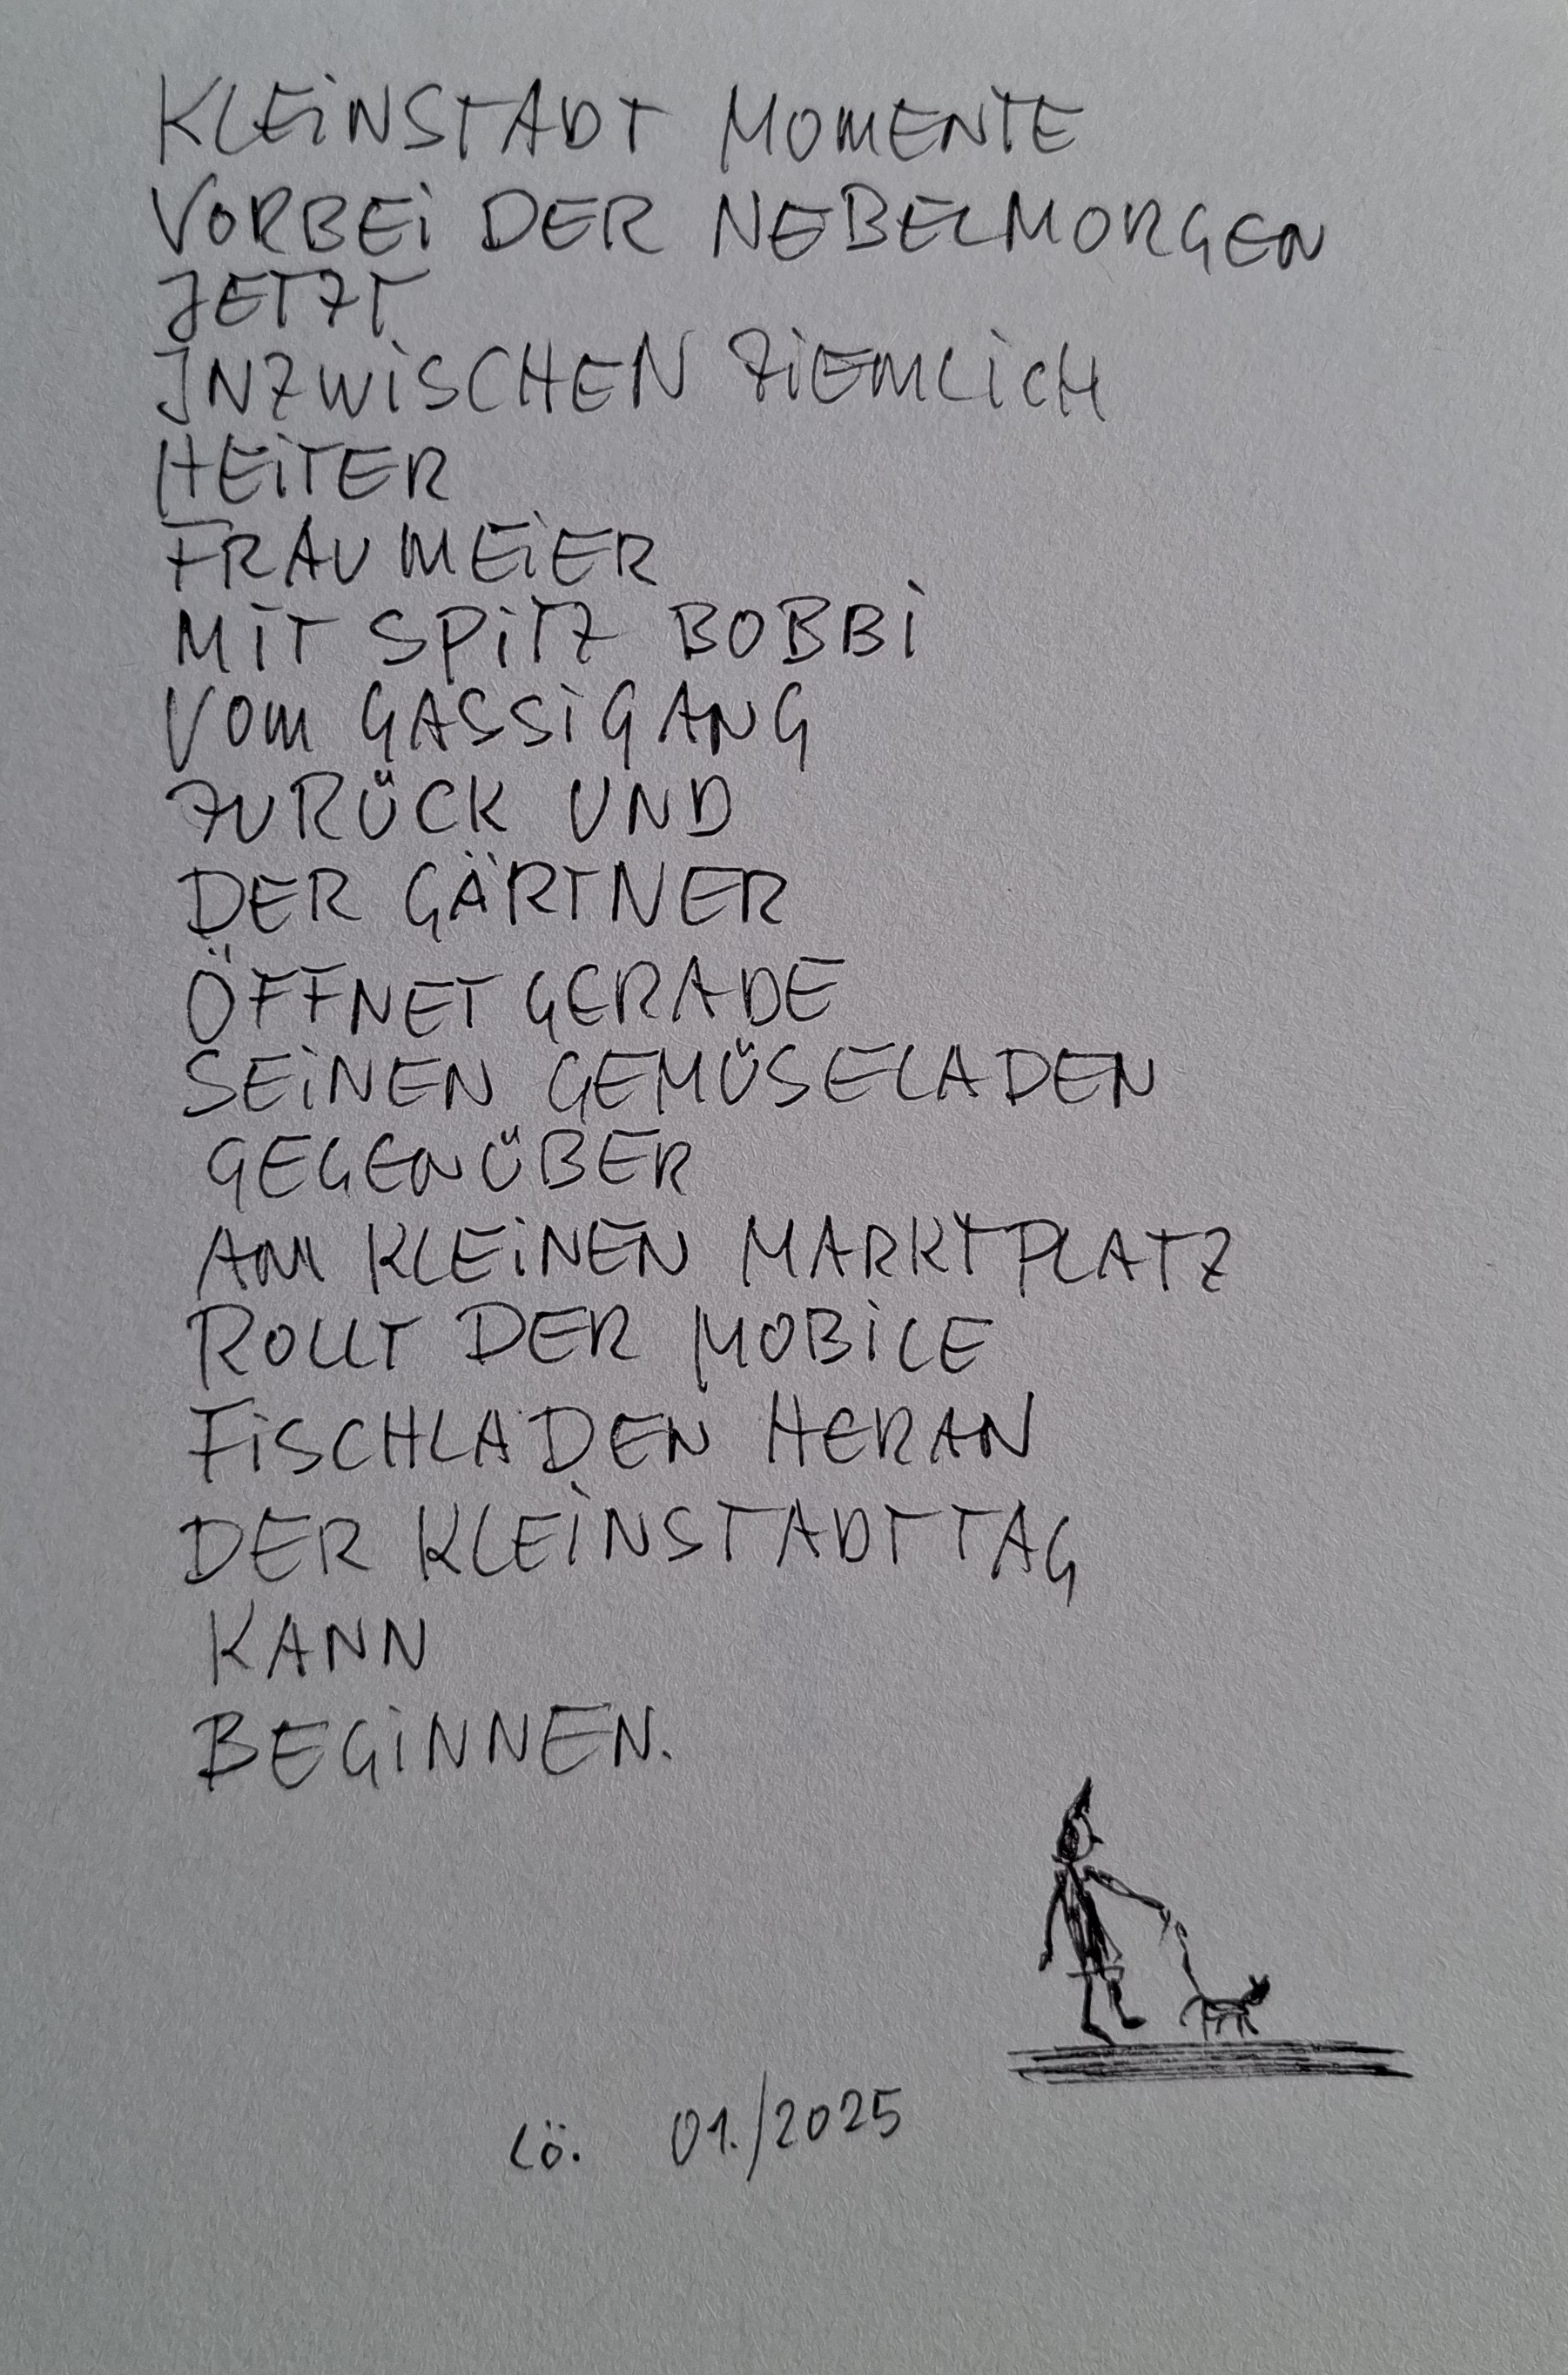 KLEiNSTADT MOMENTE
VORBEi DER NEBELMORGEN
JETZT
INZWiSCHEN ZiEMLiCH
HEiTER
FRAU MEiER
MiT SPiTZ BOBBi
VOM GASSiGANG
ZURÜCK UND
DER GÄRTNER
ÖFFNET GERADE
SEiNEN GEMÜSELADEN
GEGENÜBER
AM KLEiNEN MARKTPLATZ
ROLLT DER MOBiLE
FiSCHLADEN HERAN
DER KLEiNSTADTTAG
KANN
BEGiNNEN.
Lö. 01./2025